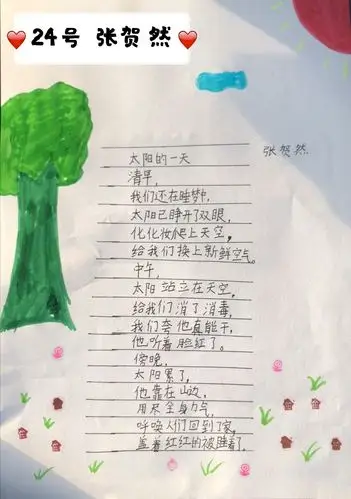 24号 张贺然
张贺然
太阳的一天
清早,
我们还在睡梦中,
太阳已睁开了双眼,
化化妆爬上天空,
给我们换上新鲜空气。
中午,
太阳站立在天空,
给我们消了消毒,
我们夸他真能干,
他听着脸红了。
傍晚,
太阳累了,
他靠在山边,
用尽全身力气,
呼唤人们回到了家,
盖着红红的被睡着了,